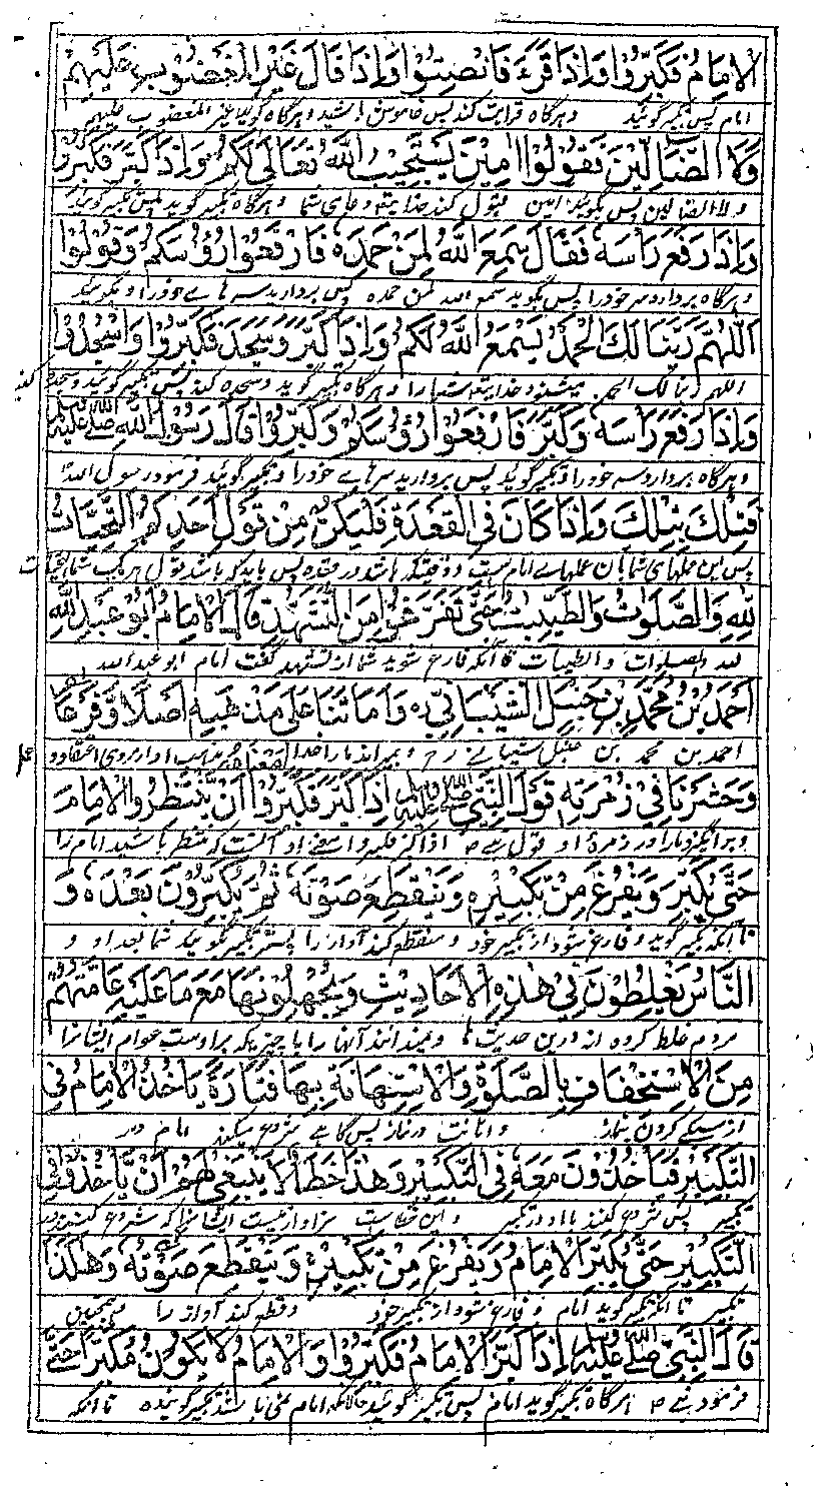 الْاِمَامُ فَكَبِّرُوْا وَاِذَا قَرَءَ فَانْصِتُوْا وَاِذَا قَالَ غَيْرِ الْمَغْضُوْبِ عَلَيْهِمْ
امام پس تکبیر گوئید و هرگاه قرایت کند پس خاموش باشید و هرگاه گوید غیر المغضوب علیهم
وَلَا الضَّالِّيْنَ فَقُوْلُوْا اٰمِيْنَ يَسْتَجِيْبُ اللّٰهُ تَعَالٰى لَكُمْ وَاِذَا كَبَّرَ فَكَبِّرُوْا
ولا الضالین پس بگوئید آمین قبول کند خدایتعالی دعای شما و هرگاه تکبیر گوید پس تکبیر گوئید
وَاِذَا رَفَعَ رَاْسَهٗ فَقَالَ سَمِعَ اللّٰهُ لِمَنْ حَمِدَهٗ فَارْفَعُوْا رُؤُسَكُمْ وَقُوْلُوْا
و هرگاه بردارد سر خود را پس بگوید سمع الله لمن حمده پس بردارید سرهاے خود را و بگوئید
اَللّٰهُمَّ رَبَّنَا لَكَ الْحَمْدُ يَسْمَعُ اللّٰهُ لَكُمْ وَاِذَا كَبَّرَ وَسَجَدَ فَكَبِّرُوْا وَاسْجُدُوْا
اللهم ربنا لک الحمد میشنود خدایتعالی شما را و هرگاه تکبیر گوید و سجده کند پس تکبیر گوئید و سجده کنید
وَاِذَا رَفَعَ رَاْسَهٗ وَكَبَّرَ فَارْفَعُوْا رُؤُسَكُمْ وَكَبِّرُوْا قَالَ رَسُوْلُ اللّٰهِ صَلَّى اللّٰهُ عَلَيْهِ وَسَلَّمَ
و هرگاه بردارد سر خود را و تکبیر گوید پس بردارید سرهاے خود را و تکبیر گوئید فرمود رسول الله
فَتِلْكَ بِتِلْكَ وَاِذَا كَانَ فِي الْقَعْدَةِ فَلْيَكُنْ مِنْ قَوْلِ اَحَدِكُمْ اَلتَّحِيَّاتُ
پس این عملهای شما بآن عملهاے امام است و وقتیکه باشد در قعده پس باید که باشد قول هر یک شما التحیات
لِلّٰهِ وَالصَّلَوٰتُ وَالطَّيِّبٰتُ حَتّٰى تَفْرُغُوْا مِنَ التَّشَهُّدِ قَالَ الْاِمَامُ اَبُوْ عَبْدِ اللّٰهِ
لله والصلوات والطیبات تا آنکه فارغ شوید شما از تشهد گفت امام ابو عبدالله
اَحْمَدُ بْنُ مُحَمَّدِ بْنِ حَنْبَلِ الشَّيْبَانِيُّ رح وَاَمَاتَنَا عَلٰى مَذْهَبِهٖ اَصْلًا وَّفَرْعًا
احمد بن محمد بن حنبل شیبانے رح و بمیراند ما را خدا بر مذهب او از روی اعتقاد و عمل
وَحَشَرَنَا فِيْ زُمْرَتِهٖ قَوْلُ النَّبِيِّ صَلَّى اللّٰهُ عَلَيْهِ وَسَلَّمَ اِذَا كَبَّرَ فَكَبِّرُوْا اَنْ يَّنْتَظِرُوا الْاِمَامَ
و برانگیزد ما را در زمرهٔ او قول نبے ص اذا کبر فکبروا معنے او آنست که منتظر باشید امام را
حَتّٰى يُكَبِّرَ وَيَفْرُغَ مِنْ تَكْبِيْرِهٖ وَيَنْقَطِعَ صَوْتُهٗ ثُمَّ يُكَبِّرُوْنَ بَعْدَهٗ وَ
تا آنکه تکبیر گوید و فارغ شود از تکبیر خود و منقطع کند آواز را پستر تکبیر گوئید شما بعد او و
النَّاسُ يَغْلِطُوْنَ فِيْ هٰذِهِ الْاَحَادِيْثِ وَيَجْهَلُوْنَهَا مَعَ مَا عَلَيْهِ عَامَّتُهُمْ
مردم غلط کرده اند درین حدیث ها و نمیدانند آنها را با چیزیکه براوست عوام ایشانرا
مِنَ الْاِسْتِخْفَافِ بِالصَّلٰوةِ وَالْاِسْتِهَانَةِ بِهَا فَتَارَةً يَاْخُذُ الْاِمَامُ فِي
از سبکے کردن بنماز و اهانت در نماز پس گاهے شروع میکند امام در
التَّكْبِيْرِ فَيَاْخُذُوْنَ مَعَهٗ فِي التَّكْبِيْرِ وَهٰذَا خَطَأٌ لَا يَنْبَغِيْ لَهُمْ اَنْ يَّاْخُذُوْا فِي
تکبیر پس شروع میکنند با او در تکبیر و این خطاست سزاوار نیست ایشانرا که شروع کنند در
التَّكْبِيْرِ حَتّٰى يُكَبِّرَ الْاِمَامُ وَيَفْرُغَ مِنْ تَكْبِيْرِهٖ وَيَنْقَطِعَ صَوْتُهٗ وَهٰكَذَا
تکبیر تا آنکه تکبیر گوید امام و فارغ شود از تکبیر خود و قطع کند آواز را و همچنین
قَالَ النَّبِيُّ صَلَّى اللّٰهُ عَلَيْهِ وَسَلَّمَ اِذَا كَبَّرَ الْاِمَامُ فَكَبِّرُوْا وَالْاِمَامُ لَا يَكُوْنُ مُكَبِّرًا حَتّٰى
فرمود نبے ص هرگاه تکبیر گوید امام پس تکبیر گوئید حالانکه امام نمی باشد تکبیر گوینده تا آنکه